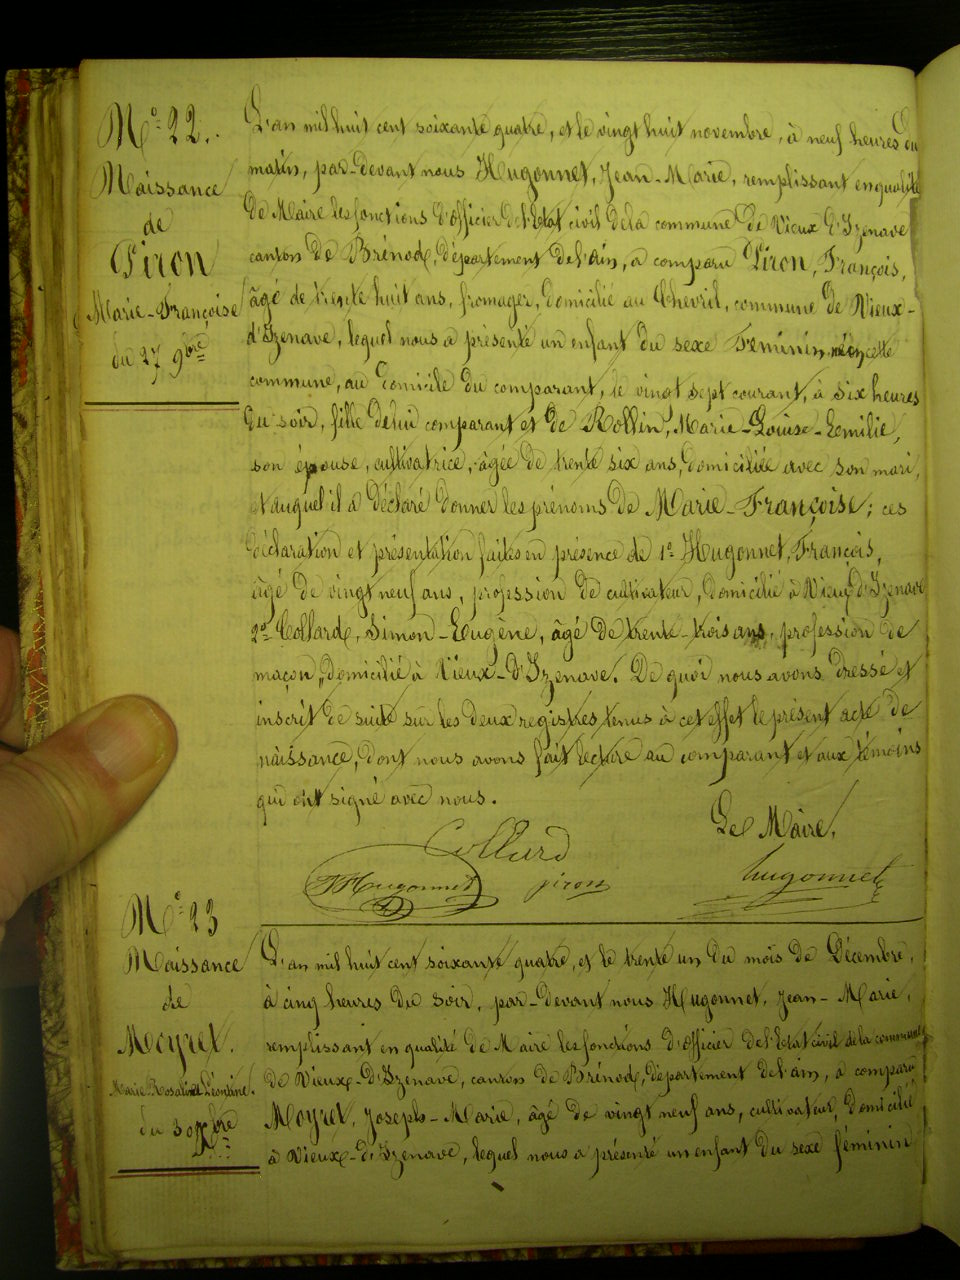 N° 22.
Naissance
de
Piron
Marie-Françoise
du 27 9bre
L'an mil huit cent soixante quatre, et le vingt huit novembre, à neuf heures du
matin, par-devant nous Hugonnet, Jean-Marie, remplissant en qualité
de Maire les fonctions d'officier de l'Etat civil de la commune de Vieux d'Izenave
canton de Brénod, département de l'ain, a comparu Piron, François,
âgé de trente huit ans, fromager, domicilié au Chevril, commune de Vieux-
d'Izenave, lequel nous a présenté un enfant du sexe Féminin, né en cette
commune, au domicile du comparant, le vingt sept courant, à six heures
du soir, fille de lui comparant et de Rollin, Marie-Louise-Emilie,
son épouse, cultivatrice, âgée de trente six ans, domiciliée avec son mari,
et auquel il a déclaré donner les prénoms de Marie-Françoise; ces
déclaration et présentation faites en présence de 1° Hugonnet, François,
âgé de vingt neuf ans, profession de cultivateur, domicilié à Vieux d'Izenave
2° Collard, Simon-Eugène, âgé de trente-trois ans, profession de
maçon, domicilié à Vieux-d'Izenave. De quoi nous avons dressé et
inscrit de suite sur les deux registres tenus à cet effet le présent acte de
naissance, dont nous avons fait lecture au comparant et aux témoins
qui ont signé avec nous.
Le Maire,
Collard
Hugonnet piron hugonnet
N° 23
Naissance
de
Moyret.
Marie-Rosalie Léontine.
du 30 Xbre
L'an mil huit cent soixante quatre, et le trente un du mois de Décembre,
à cinq heures du soir, par-devant nous Hugonnet, Jean-Marie,
remplissant en qualité de Maire les fonctions d'officier de l'Etat civil de la commune
de Vieux-d'Izenave, canton de Brénod, département de l'ain, a comparu
Moyret, Joseph-Marie, âgé de vingt neuf ans, cultivateur, domicilié
à Vieux-d'Izenave, lequel nous a présenté un enfant du sexe féminin